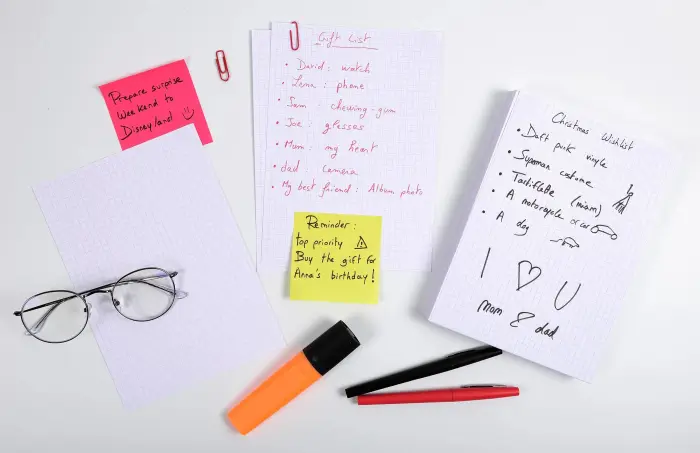 Prepare surprise
weekend to
Disneyland
Gift List
• David : watch
• Luna : phone
• Sam : chewing-gum
• Joe : glasses
• Mom : my heart
• dad : camera
• My best friend : Album photo
Reminder :
top priority
Buy the gift for
Anna's birthday !
Christmas Wishlist
• Daft punk vinyle
• Superman costume
• Tartiflette (miam)
• A motorcycle or car
• A dog
I ♡ U
mom & dad